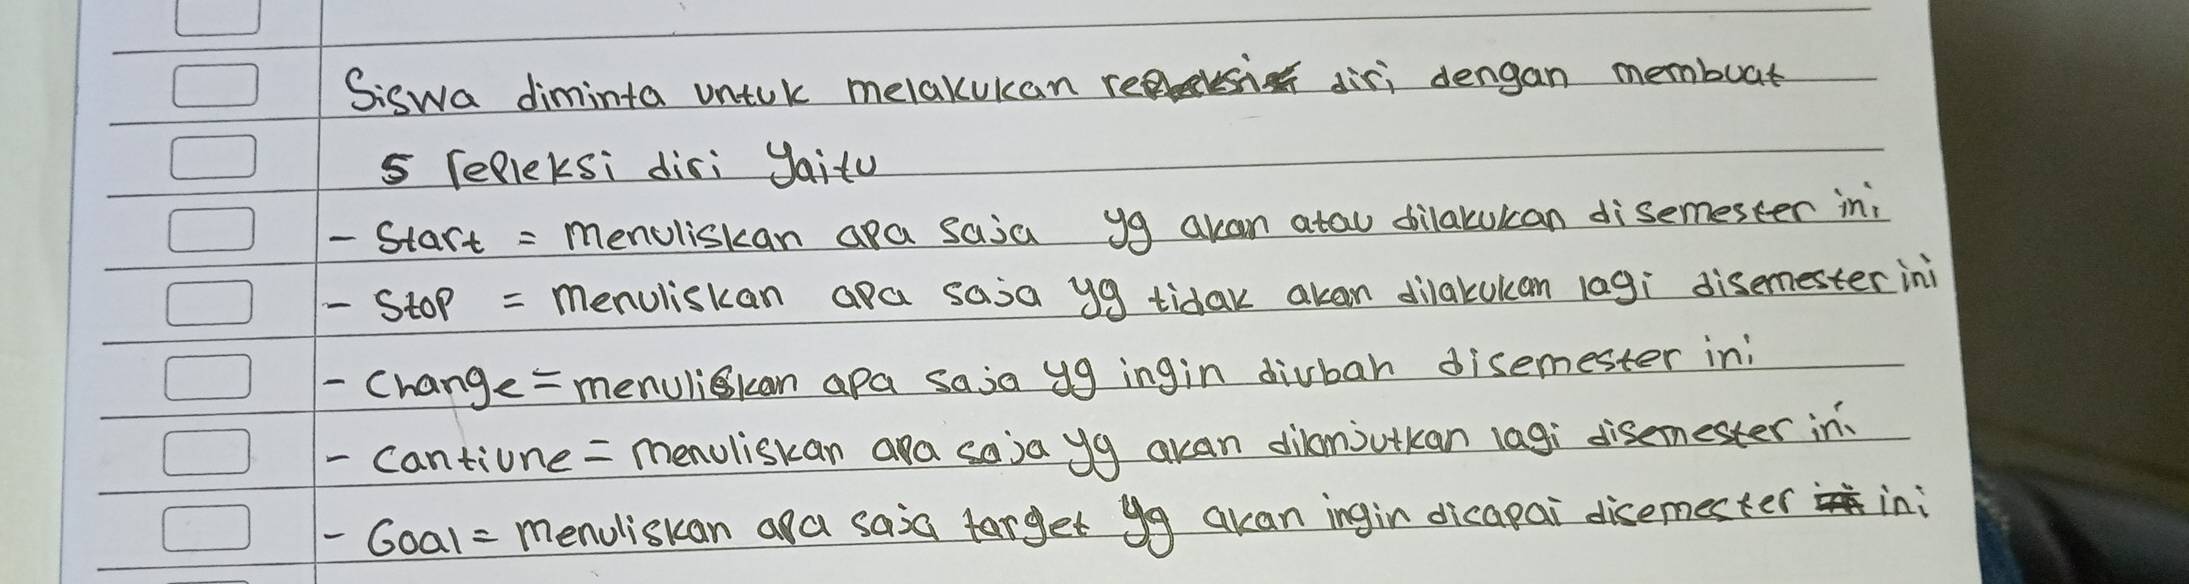 Siswa diminta untuk melakukan diri dengan membuat
5 repleksi diri yaitu
- Start = menuliskan apa saja yg akan atau dilakukan disemester ini
- Stop = menuliskan apa saja yg tidak akan dilakukan lagi disemester ini
- Change = menuliskan apa saja yg ingin diubah disemester ini
- Cantiune = menuliskan apa saja yg akan dilanjutkan lagi disemester ini
- Goal = menuliskan apa saja target yg akan ingin dicapai disemester ini